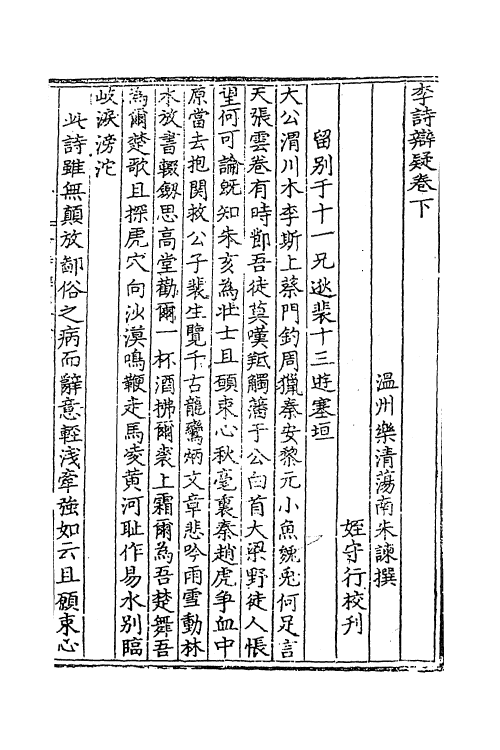 李詩辯疑卷下
溫州樂清蕩南朱諫撰
姪守行校刋
留别于十一兄逖裴十三遊塞垣
大公渭川水李斯上蔡門釣周獵秦安黎元小魚魏兎何足言
天張雲卷有時節吾徒莫嘆羝觸藩于公白首大梁野徒人悵
望何可論旣知朱亥為壯士且願束心秋毫裏秦趙虎争血中
原當去抱關救公子裴生覽千古龍鸞炳文章悲吟雨雪動林
木放書輟劔思高堂勸爾一杯酒拂爾裘上霜爾為吾楚舞吾
為爾楚歌且探虎穴向沙漠鳴鞭走馬凌黃河耻作易水别臨
岐淚滂沱
此詩雖無顛放鄙俗之病而辭意輕淺牽強如云且願束心